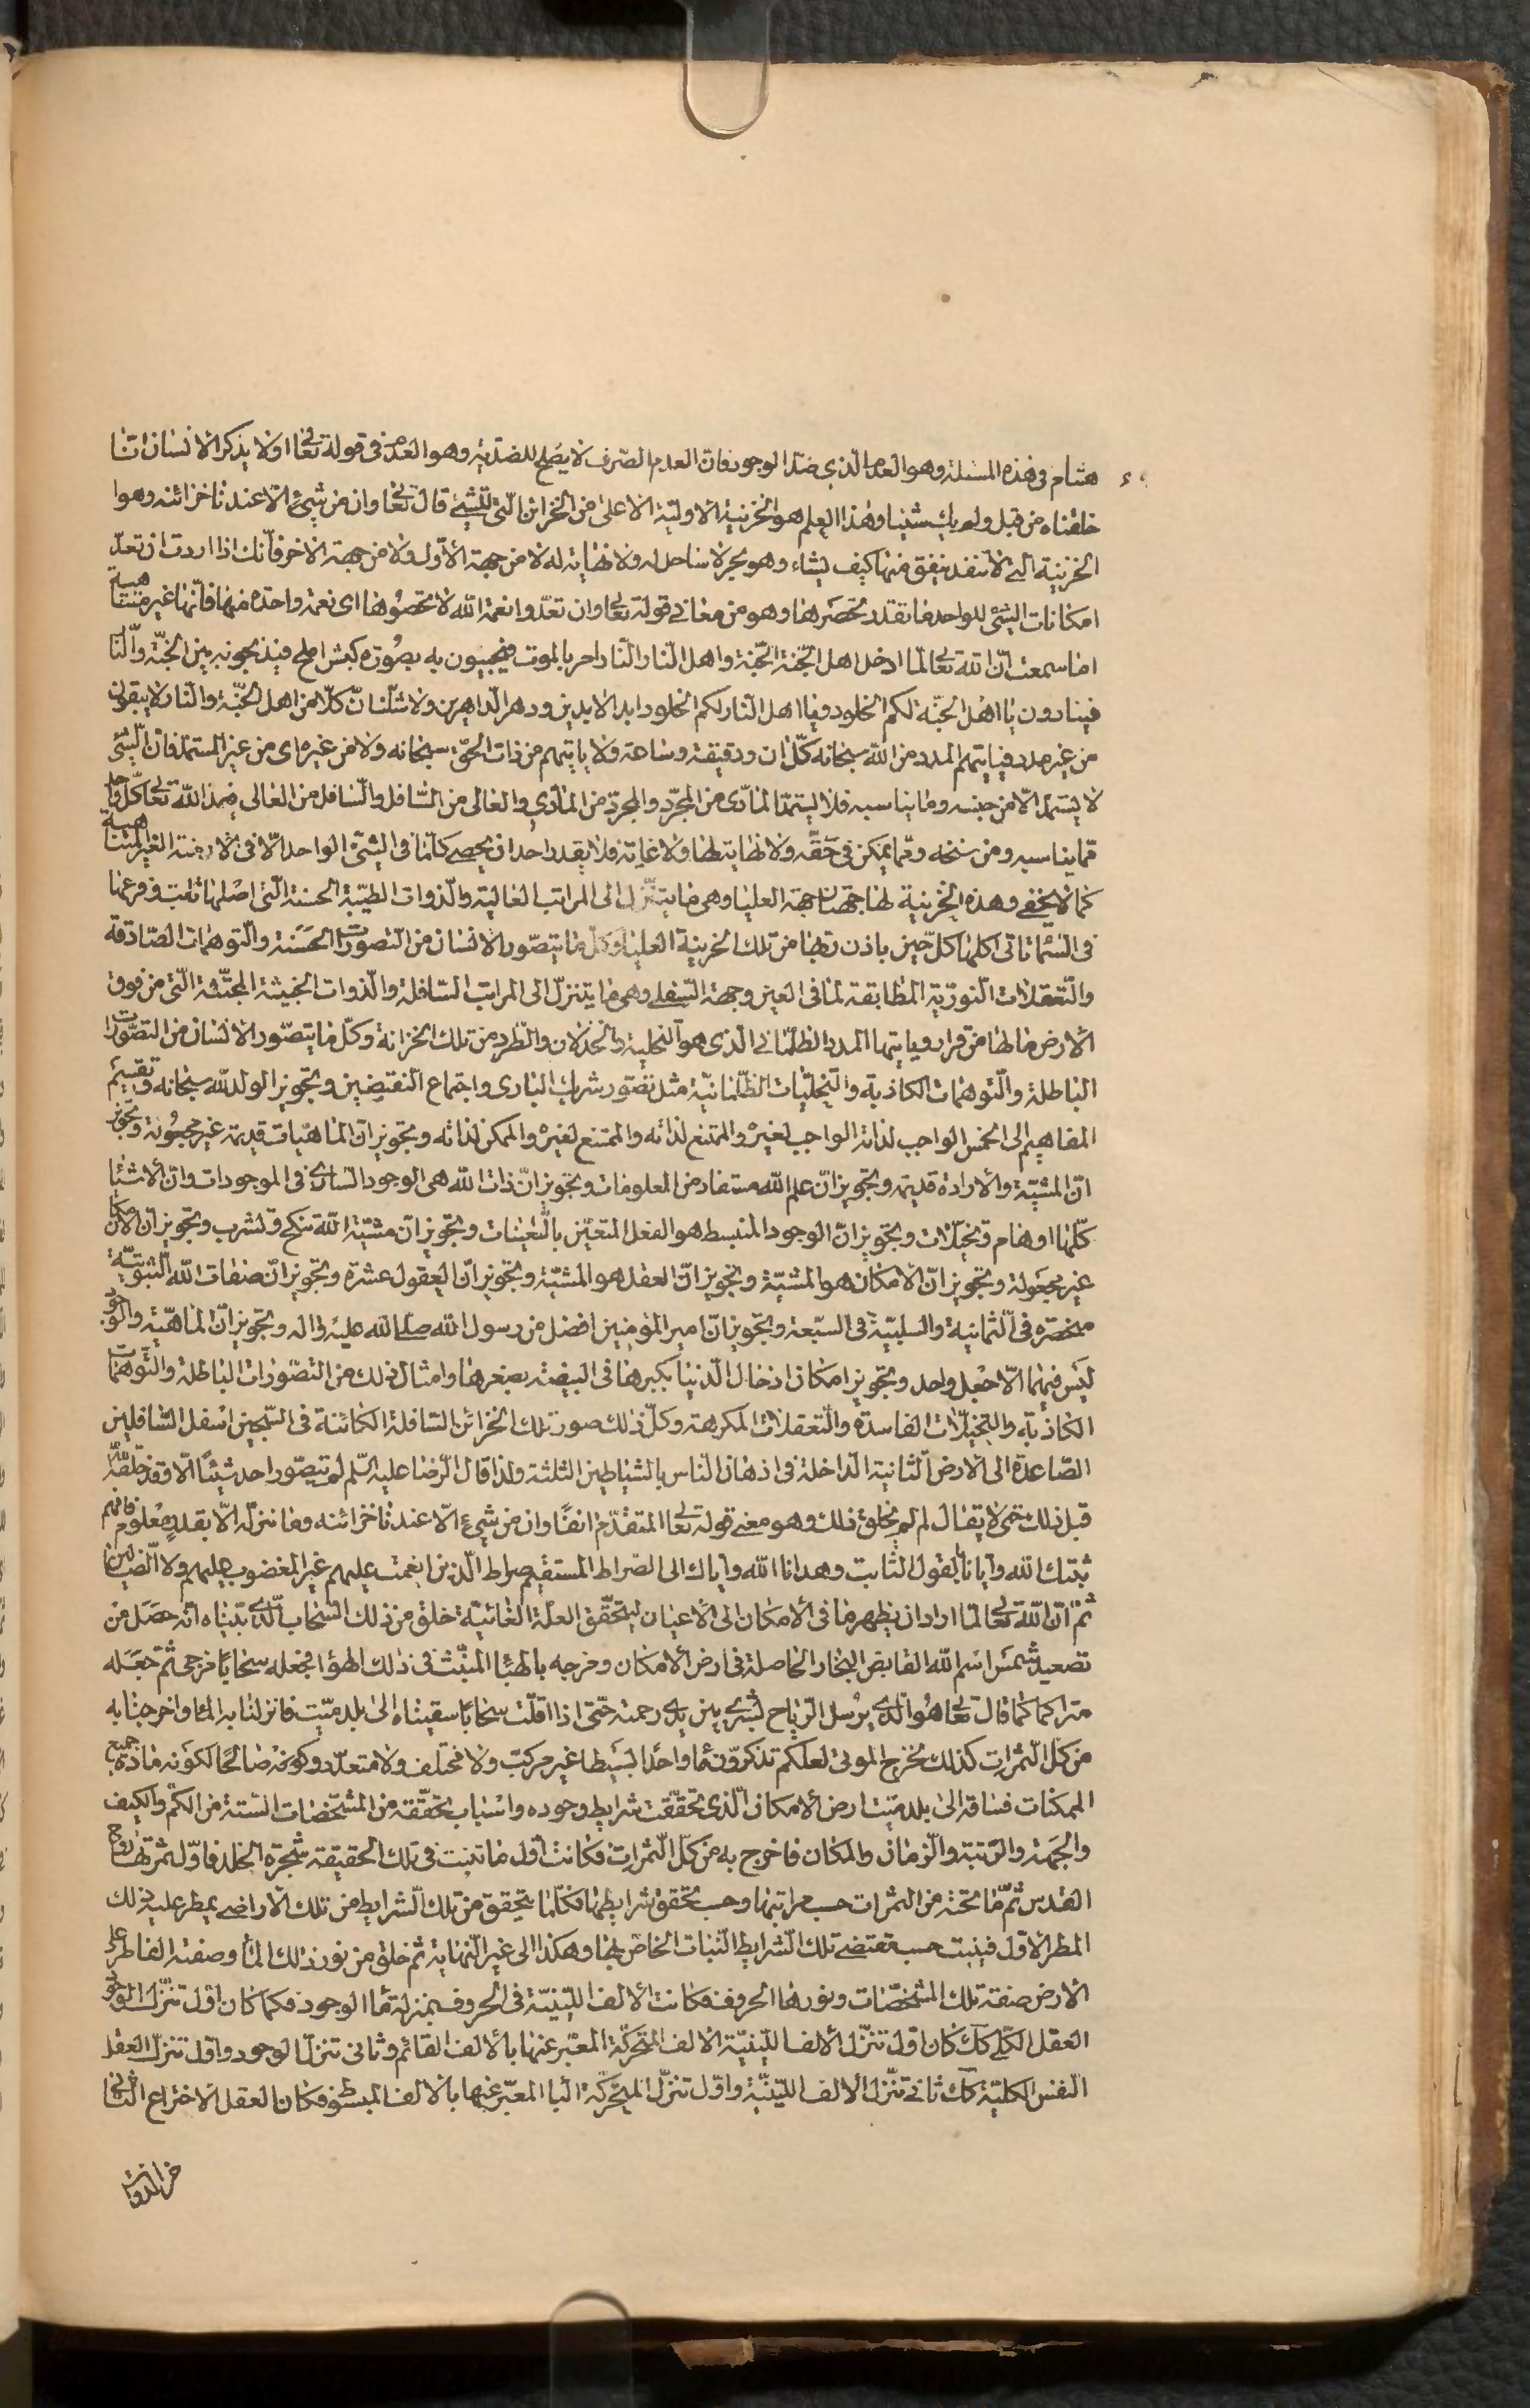 هشام فى هذه المسئلة وهو العدم الذى ضد الوجود فان العدم الصرف لا يصلح للضدية وهو العدم فى قوله تعالى اولا يذكر الانسان انا
خلقناه من قبل ولم يك شيئا وهذا العلم هو الخزينة الاولية الاعلى من الخزائن التى للشىء قال تعالى وان من شىء الا عندنا خزائنه وهو
الخزينة التى لا تنفد ينفق منها كيف يشاء وهو بحر لا ساحل له ولا نهاية له لا من جهة الاول ولا من جهة الاخر فانك اذا اردت ان تعد
امكانات الشئ الواحد ما تقدر تحصرها وهو من معانى قوله تعالى وان تعدوا نعمة الله لا تحصوها اى نعمة واحدة منها فانها غير متناهية
اما سمعت ان الله تعالى لما ادخل اهل الجنة الجنة واهل النار النار امر بالموت فيجيبون به بصورة كبش املح فيذبحونه بين الجنة والنا
فينادون يا اهل الجنة لكم الخلود ويا اهل النار لكم الخلود ابد الابدين ودهر الداهرين ولا شك ان كلا من اهل الجنة والنار لا يبقون
من غير مدد فياتيهم المدد من الله سبحانه كل ان ودقيقة وساعة ولا ياتيهم من ذات الحق سبحانه ولا من غيره اى من غير المستمد فان الشئ
لا يستمد الا من جنسه وما يناسبه فلا يستمد المادى من المجرد والمجرد من المادى والعالى من السافل والسافل من العالى فيمد الله تعالى كل واحد
مما يناسبه ومن سنخه ومما يمكن فى حقه ولا نهاية لها ولا غاية فلا يقدر احد ان يحصى كلما فى الشئ الواحد الا فى الازمنة الغير المتناهية
كما لا يخفى وهذه الخزينة لها جهتان جهة العليا وهى ما يتنزل الى المراتب العالية والذوات الطيبة الحسنة التى اصلها ثابت وفرعها
فى السماء تاتى اكلها كل حين باذن ربها من تلك الخزينة العليا وكل ما يتصور الانسان من التصورات الحسنة والتوهمات الصادقة
والتعقلات النورية المطابقة لما فى العين وجهة السفلى وهى ما يتنزل الى المراتب السافلة والذوات الخبيثة المجتثة التى من فوق
الارض ما لها من قرار وياتيها المدد الظلمانى الذى هو التخلية والخذلان والطرد من تلك الخزانة وكل ما يتصور الانسان من التصورات
الباطلة والتوهمات الكاذبة والتخيلات الظلمانية مثل تصور شريك البارى واجتماع النقيضين وتجويز الولد لله سبحانه وتقسيم
المفاهيم الى الخمس الواجب لذاته الواجب لغيره والممتنع لذاته والممتنع لغيره والممكن لذاته وتجويز ان الماهيات قديمة غير مجعولة وتجويز
ان المشية والارادة قديمة وتجويز ان علم الله مستفاد من المعلومات وتجويز ان ذات الله هى الوجود السارى فى الموجودات وان الاشيا
كلها اوهام وتخيلات وتجويز ان الوجود المنبسط هو الفعل المتعين بالتعينات وتجويز ان مشية الله تنكح وتشرب وتجويز ان الامكان
غير مجعولة وتجويز ان الامكان هو المشية وتجويز ان العقل هو المشية وتجويز ان العقول عشرة وتجويز ان صفات الله الثبوتية
منحصرة فى الثمانية والسلبية فى السبعة وتجويز ان امير المؤمنين افضل من رسول الله صلى الله عليه واله وتجويز ان الماهية والوجود
ليس فيهما الا جعل واحد وتجويز امكان ادخال الدنيا بكبرها فى البيضة بصغرها وامثال ذلك من التصورات الباطلة والتوهمات
الكاذبة والتخيلات الفاسدة والتعقلات المكرهة وكل ذلك صور تلك الخزائن السافلة الكائنة فى السجين اسفل السافلين
الصاعدة الى الارض الثانية الداخلة فى اذهان الناس بالشياطين الثلثة ولذا قال الرضا عليه السلم لم يتصور احد شيئا الا وقد خلقه الله
قبل ذلك حتى لا يقال لم لم يخلق ذلك وهو معنى قوله تعالى المتقدم انفا وان من شىء الا عندنا خزائنه وما ننزله الا بقدر معلوم فافهم
ثبتك الله وايانا بالقول الثابت وهدانا الله واياك الى الصراط المستقيم صراط الذين انعمت عليهم غير المغضوب عليهم ولا الضالين
ثم ان الله تعالى لما اراد ان يظهر ما فى الامكان الى الاعيان ليتحقق العلة الغائية خلق من ذلك السحاب الذى بيناه انه حصل من
تصعيد شمس اسم الله القابض البخار الحاصلة فى ارض الامكان ومزجه بالهباء المنبث فى ذلك الهواء فجعله سحابا مزجى ثم جعله
متراكما كما قال تعالى هو الذى يرسل الرياح بشرى بين يدى رحمته حتى اذا اقلت سحابا سقيناه الى بلد ميت فانزلنا به الماء واخرجنا به
من كل الثمرات كذلك نخرج الموتى لعلكم تذكرون ماء واحدا بسيطا غير مركب ولا مختلف ولا متعدد وكونه صالحا لكونه مادة جميع
الممكنات فساقه الى بلد ميت ارض الامكان الذى تحققت شرايط وجوده واسباب تحققه من المشخصات الستة من الكم والكيف
والجهة والرتبة والزمان والمكان فاخرج به من كل الثمرات فكانت اول ما تنبت فى تلك الحقيقة شجرة الخلد فاول ثمرتها روح
القدس ثم ما تحته من الثمرات حسب مراتبها وحسب تحقق شرايطها فكلما يتحقق من تلك الشرايط من تلك الاراضى يمطر عليه ذلك
المطر الاول فينبت حسب مقتضى تلك الشرايط النبات الخاص بها وهكذا الى غير النهاية ثم خلق من نور ذلك الماء وصفته القاطر على
الارض صفة تلك المشخصات ونورها الحروف فكانت الالف اللينية فى الحروف بمنزلة ماء الوجود فكما كان اول تنزل الوجود
العقل الكلى كك كان اول تنزل الالف اللينية الالف المتحركة المعبر عنها بالالف القائم وثانى تنزل الوجود واول تنزل العقل
النفس الكلية كك ثانى تنزل الالف اللينية واول تنزل المتحركة البا المعبر عنها بالالف المبسوط فكان العقل الاختراع الثانى